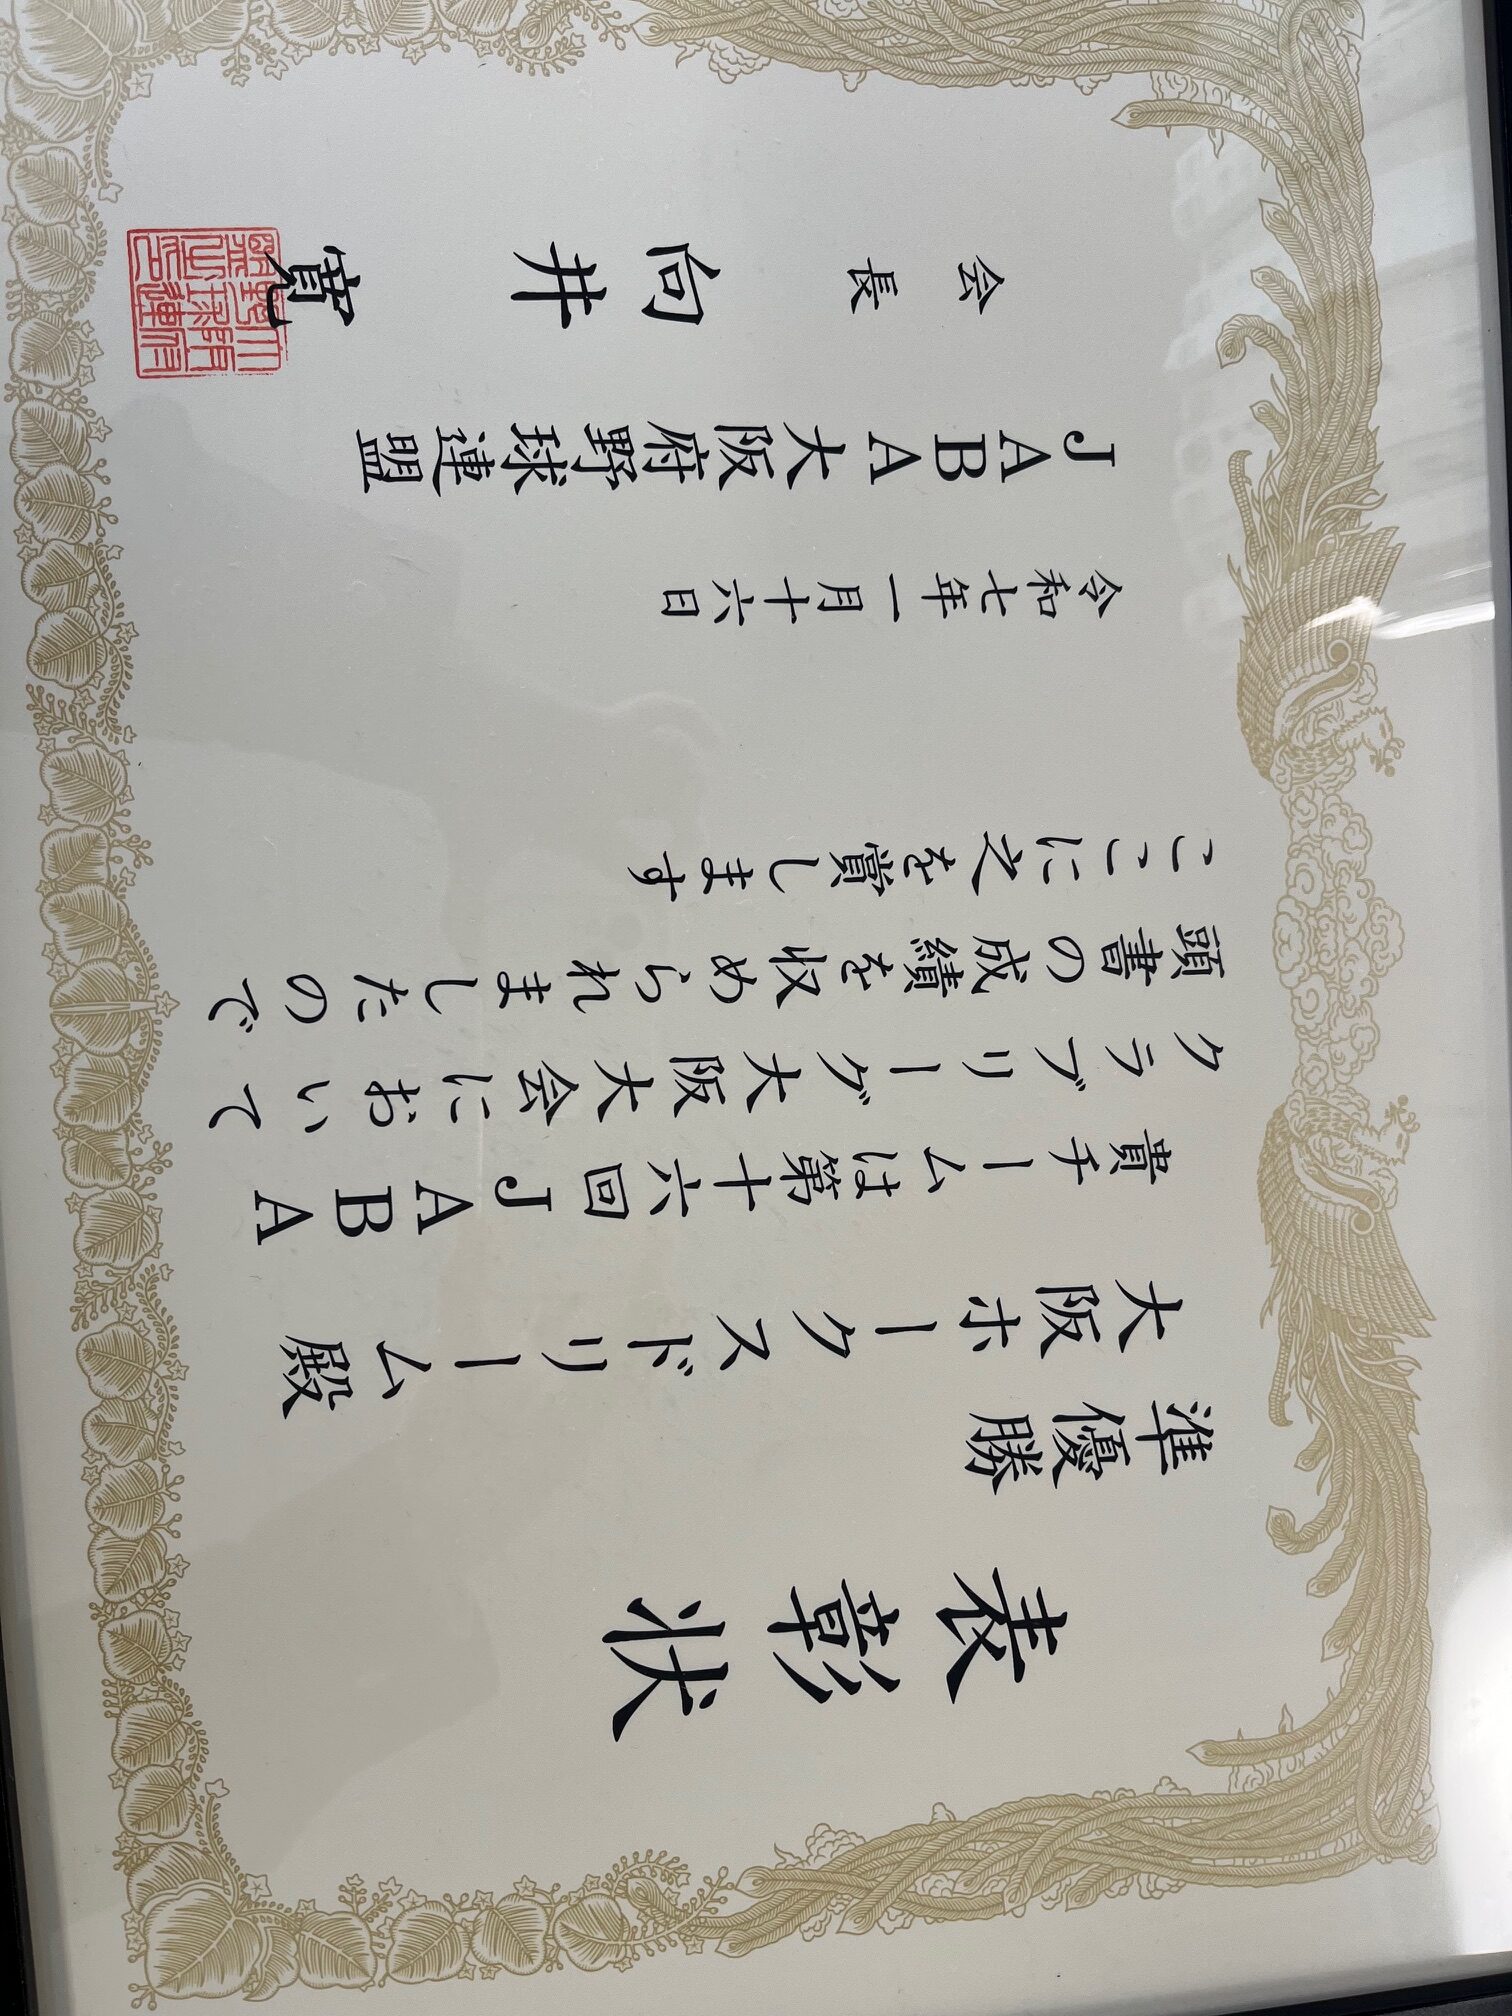 表彰状
準優勝
大阪ホークスドリーム殿
貴チームは第十六回JABA
クラブリーグ大阪大会において
頭書の成績を収められましたので
ここに之を賞します
令和七年一月十六日
JABA大阪府野球連盟
会長 向井寛